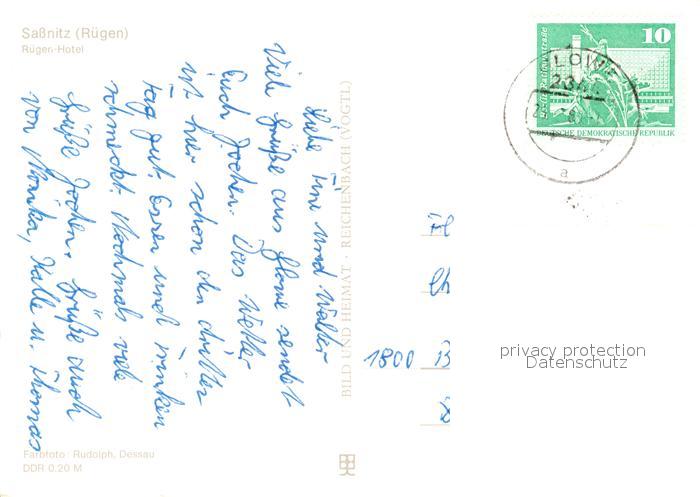 Saßnitz (Rügen)
Rügen-Hotel
Liebe Ine und Walter
Viele Grüße aus Glowe sendet
Euch Jochen. Das Wetter
ist hier schon den dritten
tag gut. Essen und trinken
schmeckt. Nochmals viele
Grüße Jochen. Grüße auch
von Monika, Kalle u. Thomas
Farbfoto: Rudolph, Dessau
DDR 0.20 M
BILD UND HEIMAT · REICHENBACH (VOGTL)
10
DEUTSCHE DEMOKRATISCHE REPUBLIK
GLOWE
a
1800 B
privacy protection
Datenschutz